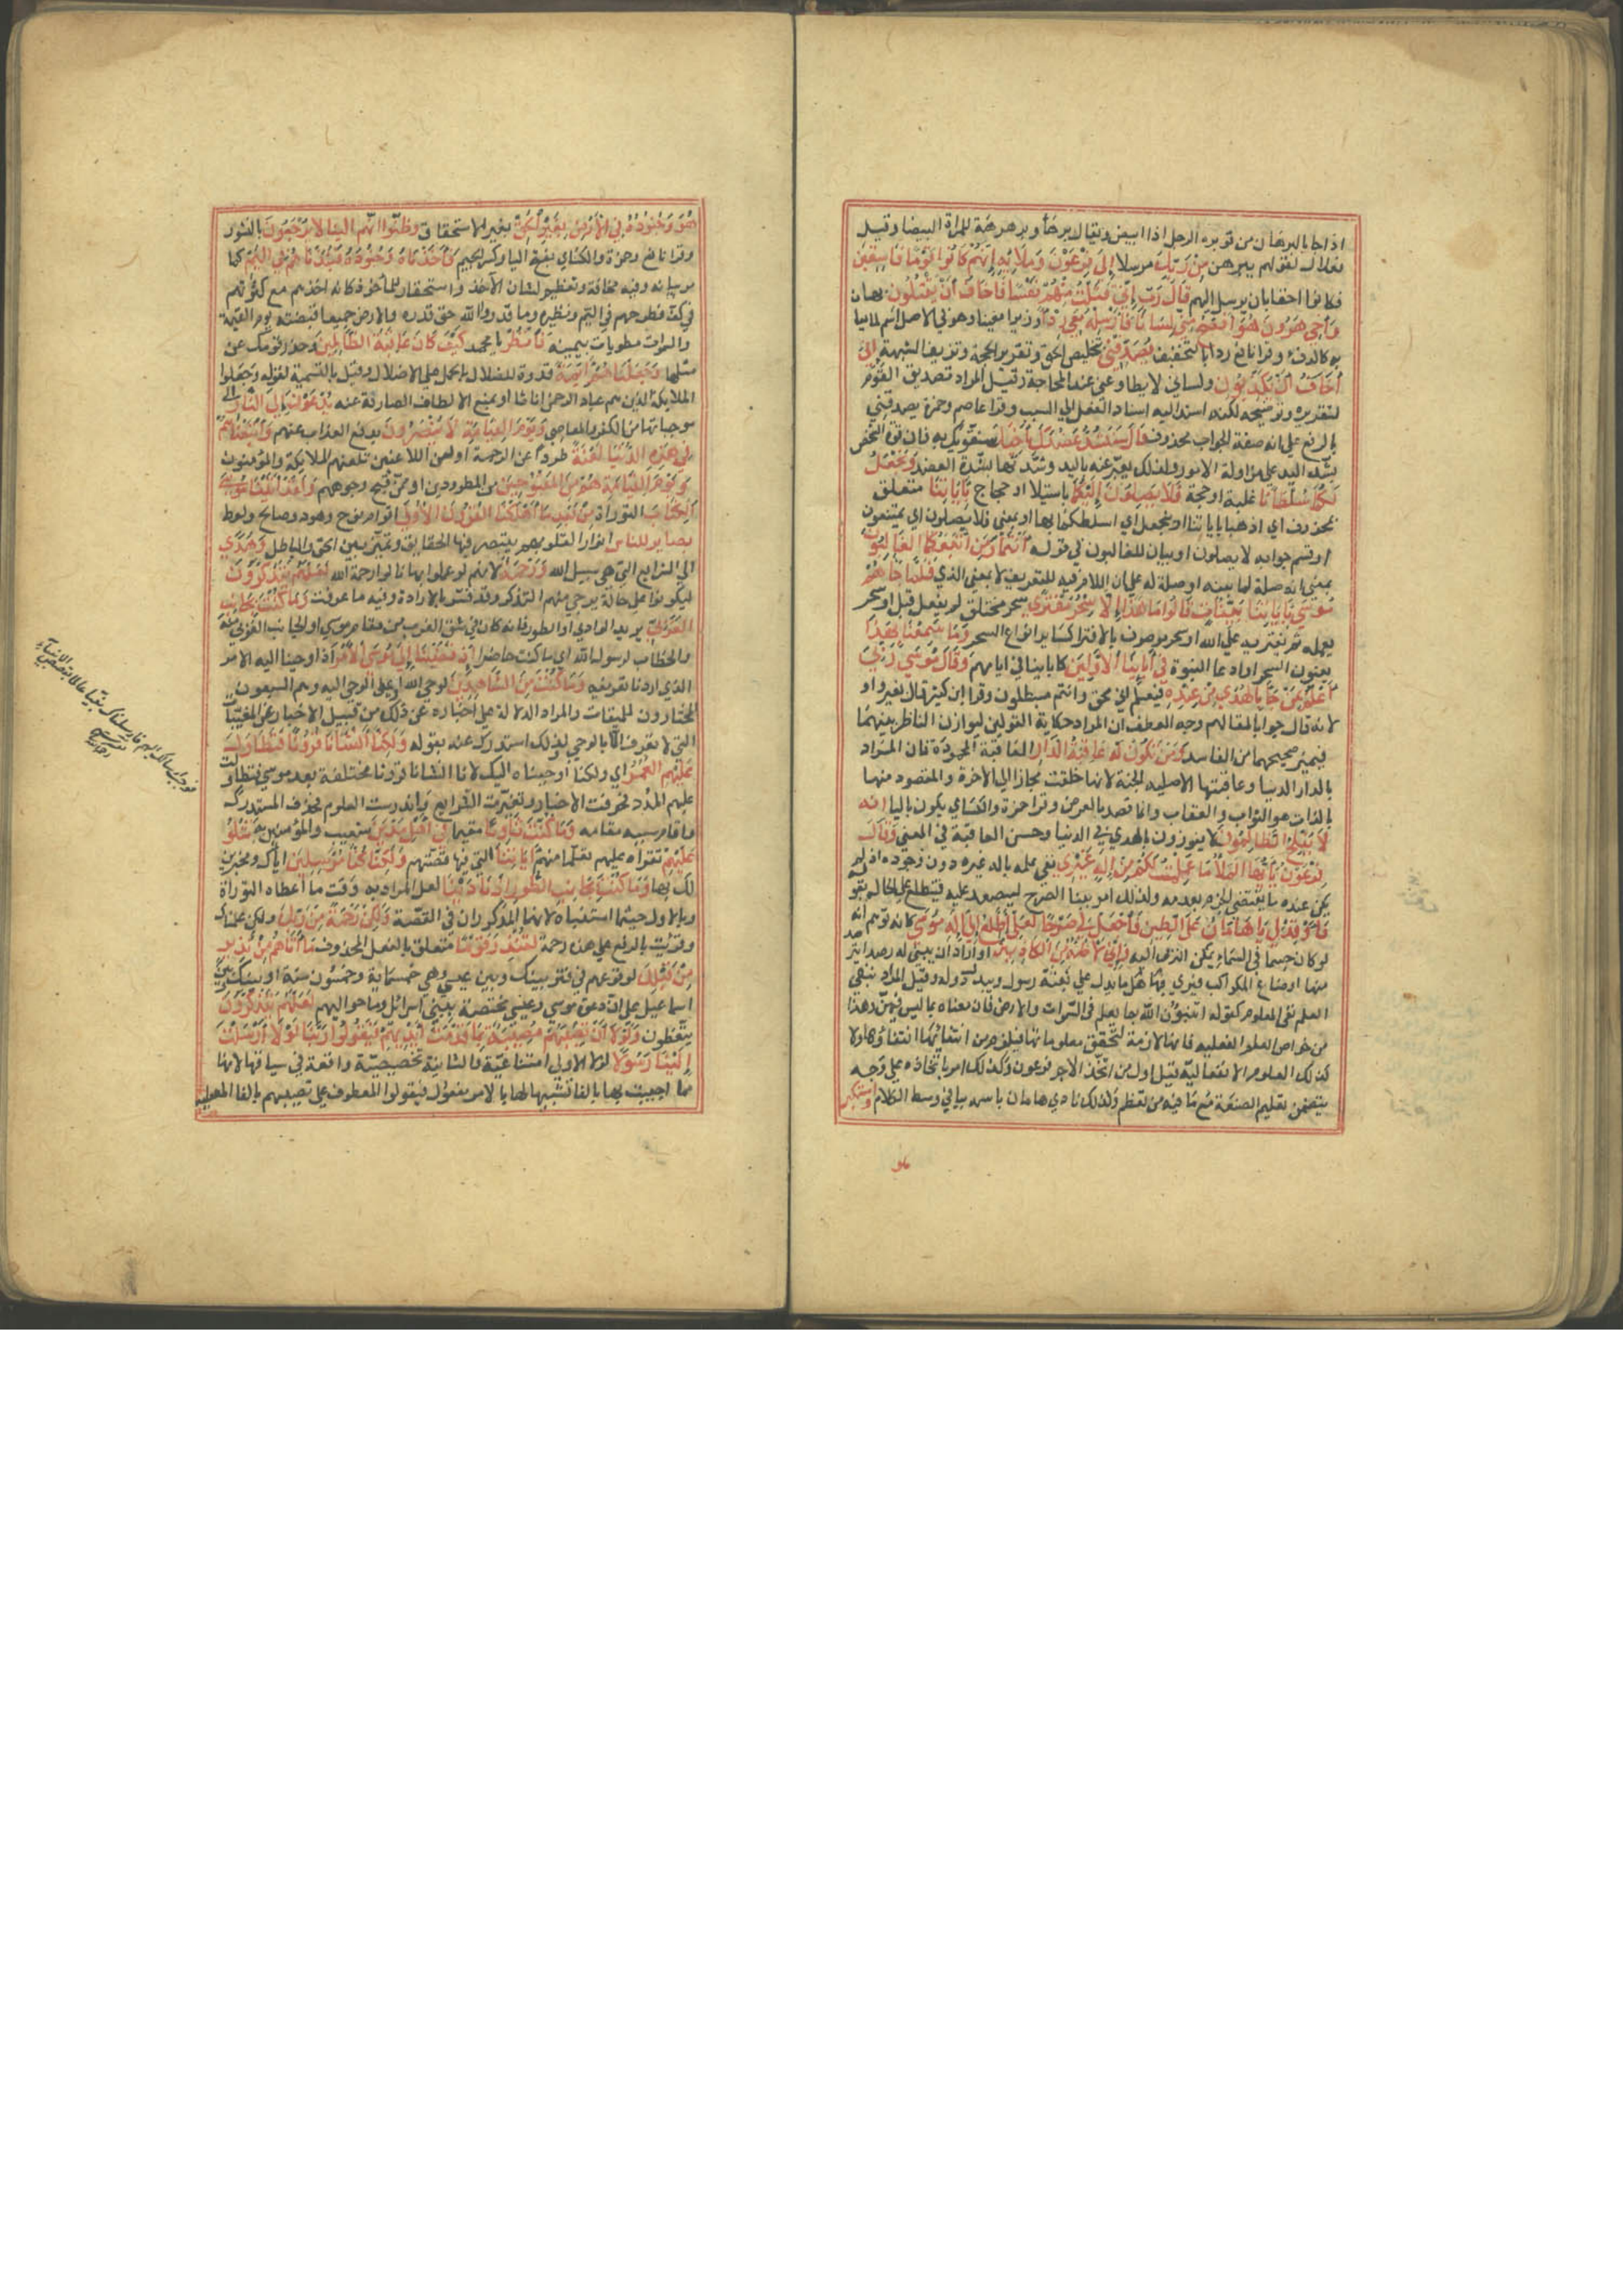 اذا جا بالبرهان من قولهم بره الرجل اذا ابيض ويقال برهاء وبرهرهة للمراة البيضا وقيل
فعلال لقولهم برهن من ربك مرسلا الى فرعون وملايه انهم كانوا قوما فاسقين
فكانوا احقا بان يرسل اليهم قال رب انى قتلت منهم نفسا فاخاف ان يقتلون بها
واخى هرون هو افصح منى لسانا فارسله معى ردا معينا وهو فى الاصل اسم لما يعان
به كالدفء وقرا نافع ردا بالتخفيف يصدقنى بتخليص الحق وتقرير الحجة وتزييف الشبهة انى
اخاف ان يكذبون ولسانى لا يطاوعنى عند المحاجة وقيل المراد تصديق القوم
لتقريره وتوضيحه لكنه اسند اليه اسناد الفعل الى السبب وقرا عاصم وحمزة يصدقنى
بالرفع على انه صفة والجواب محذوف قال سنشد عضدك باخيك سنقويك به فان قوة الشخص
بشدة اليد على مزاولة الامور ولذلك يعبر عنه باليد وشدتها بشدة العضد ونجعل
لكما سلطانا غلبة او حجة فلا يصلون اليكما باستيلا او حجاج باياتنا متعلق
بمحذوف اى اذهبا باياتنا او بنجعل اى نسلطكما بها او بمعنى لا يصلون اى تمتنعون
او قسم جوابه لا يصلون او بيان للغالبون فى قوله انتما ومن اتبعكما الغالبون
بمعنى انه صلة لما بينه او صلة له على ان اللام فيه للتعريف لا بمعنى الذى فلما جاهم
موسى باياتنا بينات قالوا ما هذا الا سحر مفترى سحر مختلق لم يفعل قبل او سحر
يعمله ثم يفتريه على الله او سحر موصوف بالافترا كساير انواع السحر وما سمعنا بهذا
يعنون السحر او ادعا النبوة فى اباينا الاولين كاينا فى ايامهم وقال موسى ربى
اعلم بمن جا بالهدى من عنده فيعلم انى محق وانتم مبطلون وقرا ابن كثير قال بغير واو
لانه قال جوابا لمقالهم ووجه العطف ان المراد حكاية القولين ليوازن الناظر بينهما
فيميز صحيحهما من الفاسد ومن تكون له عاقبة الدار العاقبة المحمودة فان المراد
بالدار الدنيا وعاقبتها الاصلية الجنة لانها خلقت مجازا الى الاخرة والمقصود منها
بالذات هو الثواب والعقاب وانما قصد بالعرض وقرا حمزة والكساى يكون باليا انه
لا يفلح الظالمون لا يفوزون بالهدى فى الدنيا وحسن العاقبة فى العقبى وقال
فرعون يا ايها الملا ما علمت لكم من اله غيرى نفى علمه باله غيره دون وجوده اذ لم
يكن عنده ما يقتضى الجزم بعدمه ولذلك امر ببنا الصرح ليصعد عليه فيتطلع على الحال بقوله
فاوقد لى يا هامان على الطين فاجعل لى صرحا لعلى اطلع الى اله موسى كانه توهم انه
لو كان جسما فى السماء يمكن الترقى اليه وانى لاظنه من الكاذبين او اراد ان يبنى له رصدا يترصد
منها اوضاع الكواكب فيرى هل فيها ما يدل على بعثة رسول وتبدل دولة وقيل المراد بنفى
العلم نفى المعلوم كقوله اتنبؤن الله بما لا يعلم فى السموات ولا فى الارض فان معناه بما ليس فيهن وهذا
من خواص العلوم الفعلية فانها لازمة لتحقق معلوماتها فيلزم من انتفائها انتفاؤها ولا
كذلك العلوم الانفعالية قيل اول من اتخذ الآجر فرعون ولذلك امر باتخاذه على وجه
يتضمن تعليم الصنعة مع ما فيه من تعظم ولذلك نادى هامان باسمه بيا فى وسط الكلام واستكبر
هو
هو وجنوده فى الارض بغير الحق بغير الاستحقاق وظنوا انهم الينا لا يرجعون بالنشور
وقرا نافع وحمزة والكساى بفتح اليا وكسر الجيم فاخذناه وجنوده فنبذناهم فى اليم كما
مر بيانه وفيه فخامة وتعظيم لشان الآخذ واستحقار للمأخوذ كانه اخذهم مع كثرتهم
فى كف فطرحهم فى اليم ونظيره وما قدروا الله حق قدره والارض جميعا قبضته يوم القيمة
والسموات مطويات بيمينه فانظر يا محمد كيف كان عاقبة الظالمين وحذر قومك عن
مثلها وجعلناهم ائمة قدوة للضلال بالحمل على الاضلال وقيل بالتسمية لقوله وجعلوا
الملايكة الذين هم عباد الرحمن اناثا او بمنع الالطاف الصارفة عنه يدعون الى النار الى
موجباتها من الكفر والمعاصى ويوم القيامة لا ينصرون بدفع العذاب عنهم واتبعناهم
فى هذه الدنيا لعنة طردا عن الرحمة او لعن اللاعنين تلعنهم الملايكة والمؤمنون
ويوم القيامة هم من المقبوحين من المطرودين او ممن قبح وجوههم ولقد اتينا موسى
الكتاب التوراة من بعد ما اهلكنا القرون الاولى اقوام نوح وهود وصالح ولوط
بصاير للناس انوارا لقلوبهم يتبصر فيها الحقايق وتميز بين الحق والباطل وهدى
الى الشرايع التى هى سبيل الله ورحمة لانهم لو عملوا بها نالوا رحمة الله لعلهم يتذكرون
ليكونوا على حالة يرجى منهم التذكر وقد فسر بالارادة وفيه ما عرفت وما كنت بجانب
الغربى يريد الوادى او الطور فانه كان فى شق الغرب من مقام موسى او الجانب الغربى منه
والخطاب لرسول الله اى ما كنت حاضرا اذ قضينا الى موسى الامر اذ اوحينا اليه الامر
الذى اردنا تعريفه وما كنت من الشاهدين لوحى الله او على الوحى اليه وهم السبعون
المختارون للميقات والمراد الدلالة على ان اخباره عن ذلك من قبيل الاخبار عن المغيبات
التى لا تعرف الا بالوحى ولذلك استدرك عنه بقوله ولكنا انشأنا قرونا فتطاول
عليهم العمر اى ولكنا اوحينا اليك لانا انشأنا قرونا مختلفة بعد موسى فتطاولت
عليهم المدد فحرفت الاخبار وتغيرت الشرايع واندرست العلوم فحذف المستدرك
واقام سببه مقامه وما كنت ثاويا مقيما فى اهل مدين شعيب والمؤمنين به تتلو
عليهم تقراه عليهم تعلما منهم اياتنا التى فيها قصتهم ولكنا كنا مرسلين اياك ومخبرين
لك بها وما كنت بجانب الطور اذ نادينا لعل المراد به وقت ما اعطاه التوراة
وبالاول حيثما استنباه لانهما المذكوران فى القصة ولكن رحمة من ربك ولكن علمناك
وقريت بالرفع على هذه رحمة لتنذر قوما متعلق بالفعل المحذوف ما اتاهم من نذير
من قبلك لوقوعهم فى فترة بينك وبين عيسى وهى خمسماية وخمسون سنة او بينك وبين
اسماعيل على ان دعوة موسى وعيسى مختصة ببنى اسرائل وما حواليهم لعلهم يتذكرون
يتعظون ولولا ان تصيبهم مصيبة بما قدمت ايديهم فيقولوا ربنا لولا ارسلت
الينا رسولا لولا الاولى امتناعية والثانية تحضيضية واقعة فى سياقها لانها
مما اجيبت بها بالفا تشبيها لها بالامر مفعول فيقولوا المعطوف على تصيبهم بالفا المعطية